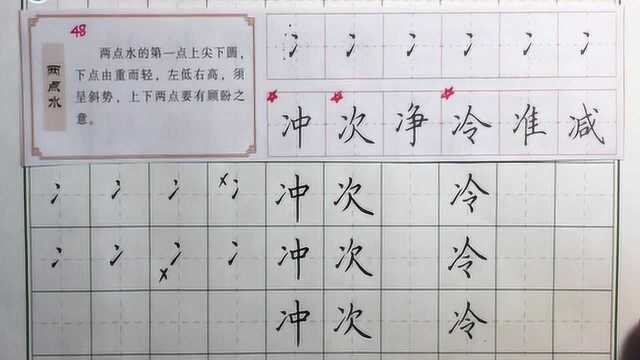 48
两点水
两点水的第一点上尖下圆，
下点由重而轻，左低右高，须
呈斜势，上下两点要有顾盼之
意。
冫 冫 冫 冫 冫 冫
冲 次 净 冷 准 减
冫 冫 冫 x冫 冲 次 冷
冫 冫 x冫 冫 冲 次 冷
冲 次 冷